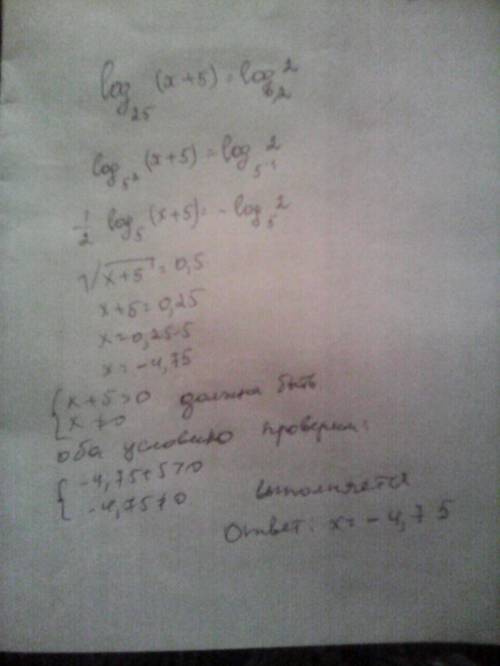 log₂₅ (x+5) = log₀,₂ 2
log₅² (x+5) = log₅⁻¹ 2
1/2 log₅ (x+5) = - log₅ 2
√x+5 = 0,5
x+5 = 0,25
x = 0,25-5
x = -4,75
{ x+5>0 должна быть
x ≠ 0
оба условию проверим:
{ -4,75+5>0
-4,75≠0 выполняется
Ответ: x = -4,75